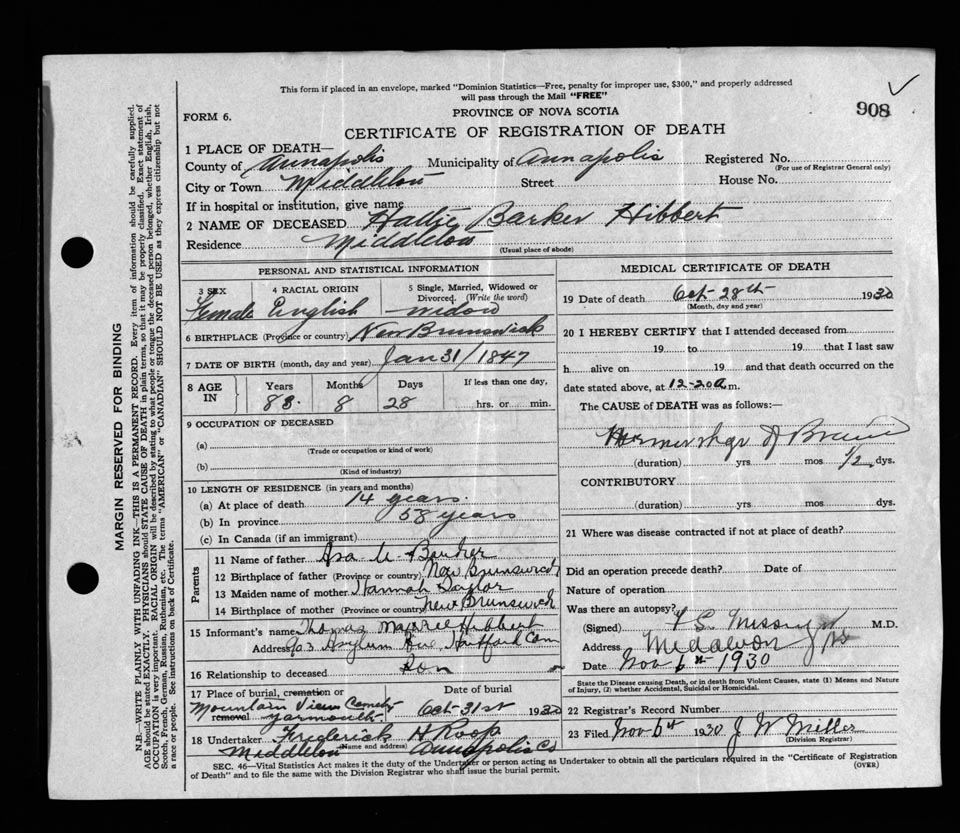 This form if placed in an envelope, marked "Dominion Statistics—Free, penalty for improper use, $300," and properly addressed
will pass through the Mail "FREE"
908
FORM 6.
PROVINCE OF NOVA SCOTIA
CERTIFICATE OF REGISTRATION OF DEATH
1 PLACE OF DEATH—
County of Annapolis Municipality of Annapolis Registered No.
(For use of Registrar General only)
City or Town Middleton Street House No.
If in hospital or institution, give name
2 NAME OF DECEASED Hattie Barker Hibbert
Residence Middleton
(Usual place of abode)
PERSONAL AND STATISTICAL INFORMATION
3 SEX 4 RACIAL ORIGIN 5 Single, Married, Widowed or Divorced. (Write the word)
Female English widow
6 BIRTHPLACE (Province or country) New Brunswick
7 DATE OF BIRTH (month, day and year) Jan 31/1847
8 AGE IN Years Months Days If less than one day,
83. 8 28 hrs. or min.
9 OCCUPATION OF DECEASED
(a)
(Trade or occupation or kind of work)
(b)
(Kind of industry)
10 LENGTH OF RESIDENCE (in years and months)
(a) At place of death 14 years.
(b) In province 58 years
(c) In Canada (if an immigrant)
Parents
11 Name of father Asa Barker
12 Birthplace of father (Province or country) New Brunswick
13 Maiden name of mother Hannah Taylor
14 Birthplace of mother (Province or country) New Brunswick
15 Informant's name Thomas Hibbert
Address 903 Asylum Ave Hartford Conn
16 Relationship to deceased Son
17 Place of burial, cremation or removal Date of burial
Mountain View Cemetry
Yarmouth Oct-31st 1930
18 Undertaker Frederick H Roop
(Name and address)
Middleton Annapolis Co
MEDICAL CERTIFICATE OF DEATH
19 Date of death Oct-28th 1930
(Month, day and year)
20 I HEREBY CERTIFY that I attended deceased from
19 to 19 that I last saw
h alive on 19 and that death occurred on the
date stated above, at 12-20 a m.
The CAUSE of DEATH was as follows:—
Hermorrhage of Brain
(duration) yrs mos 1/2 dys.
CONTRIBUTORY
(duration) yrs mos dys.
21 Where was disease contracted if not at place of death?
Did an operation precede death? Date of
Nature of operation
Was there an autopsy?
(Signed) M.D.
Address Middleton NS
Date Nov 6th 1930
State the Disease causing Death, or in death from Violent Causes, state (1) Means and Nature
of Injury, (2) whether Accidental, Suicidal or Homicidal.
22 Registrar's Record Number
23 Filed Nov 6th 1930 J W Miller
(Division Registrar)
SEC. 46—Vital Statistics Act makes it the duty of the Undertaker or person acting as Undertaker to obtain all the particulars required in the "Certificate of Registration
of Death" and to file the same with the Division Registrar who shall issue the burial permit.
(OVER)
MARGIN RESERVED FOR BINDING
N.B.—WRITE PLAINLY WITH UNFADING INK—THIS IS A PERMANENT RECORD. Every item of information should be carefully supplied.
AGE should be stated EXACTLY. PHYSICIANS should STATE CAUSE OF DEATH in plain terms, so that it may be properly classified. Exact statement of
OCCUPATION is very important. RACIAL ORIGIN will be described by stating to what people or tongue the deceased person belonged, whether English, Irish,
Scotch, French, German, Russian, Ruthenian, etc. The terms "AMERICAN" or "CANADIAN" SHOULD NOT BE USED as they express citizenship but not
a race or people. See instructions on back of Certificate.